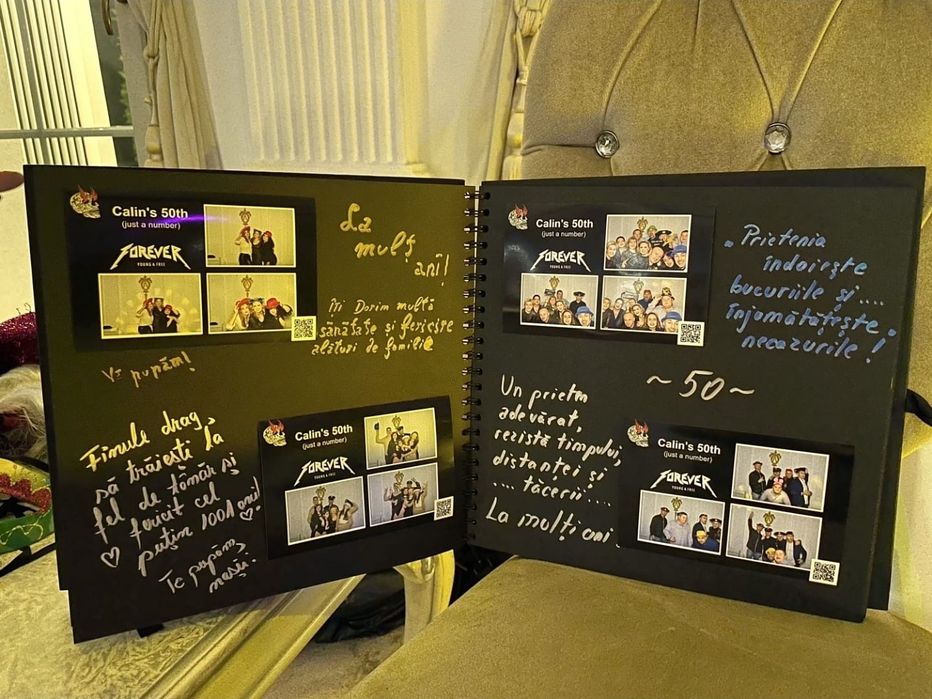 Calin's 50th
(just a number)
FOREVER
YOUNG & FREE
La
mulț
ani!
Îți Dorim multă
sănătate și fericire
alături de familie
Vă pupăm!
Finule drag,
să trăiești la
fel de tânăr și
fericit cel
puțin 1001 ani!
Te pupăm,
nașii.
Calin's 50th
(just a number)
FOREVER
YOUNG & FREE
Calin's 50th
(just a number)
FOREVER
YOUNG & FREE
„Prietenia
îndoiește
bucuriile și....
înjumătățește
necazurile!
~50~
Un prieten
adevărat,
rezistă timpului,
distanței și
.... tăcerii....
La mulți ani
Calin's 50th
(just a number)
FOREVER
YOUNG & FREE